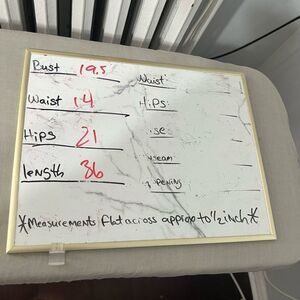 Bust 19.5
Waist 14
Hips 21
length 36
Waist
Hips
*Measurements flat across approx to 1/2 inch*